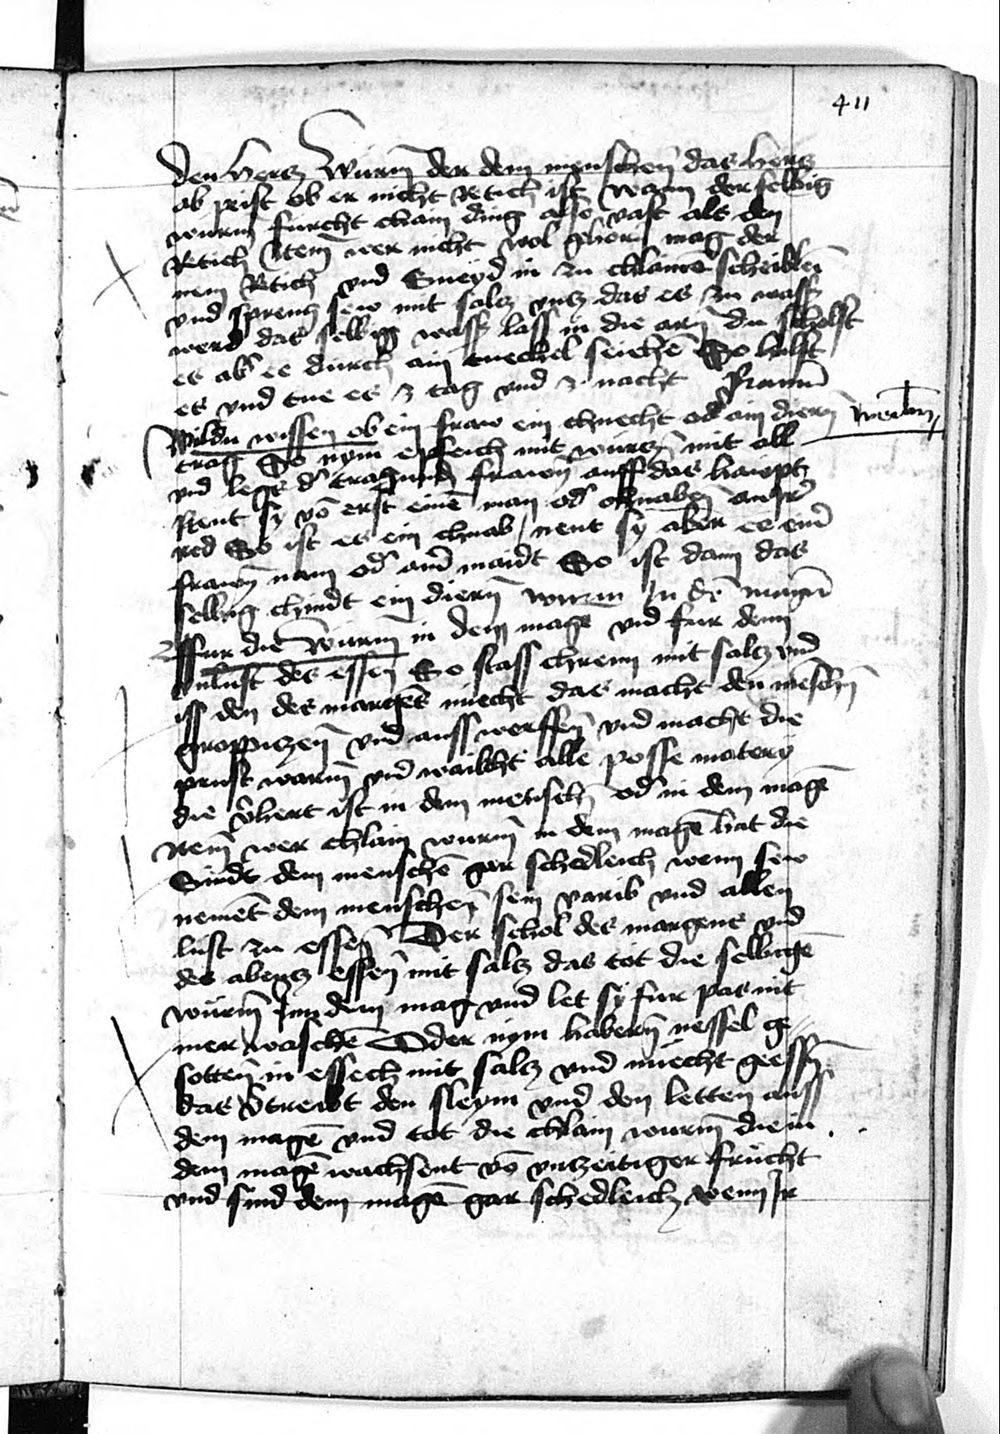 411
den hercz Wurm der dem menschen das hercz
ab prist ob er nicht Retich ist wann der selbig
wurm furcht chain ding also vast als den
Retich Item wer nicht wol ghorn mag der
nem Retich vnd Sneyd in zu chlainē scheiblen
vnd spreng sew mit salcz vncz das es zu wass
werd das selbig wass lass in die orn du scholt
es ab ee durch ain tuechel seichē So hilft
es vnd tue es 3 tag vnd 3 nacht frawn
Wildu wissen ob ein fraw ein chnecht od ain diern werlein
trag So nym epfeich mit wurczn mit all
vnd legs d tragund frawn auff das haupt
Nent sy vō erst einē man od chnaben an ir
red So ist es ein chnab nent sy aber es ein
frawn nam od ain maidt So ist dann das
selbig chindt ein diern wurm In dē magen
Fur die Wurm in dem mage vnd fur denn
vnlust des essen So stoss chrenn mit salcz vnd
iss den des margēs nuecht das macht den mēschn
groppiczen vnd auss werffen vnd macht die
prust warm vnd waicht alle posse matery
die v̄hert ist in dem menschn od in dem magē
Item wer chlain wurm in dem magē hat die
Sindt dem menschē gar schedleich wenn sew
nemēt dem menschen sein varib vnd allen
lust zu essen Der schol des margens vnd
des abencz essen mit salcz das tot die selbigē
wurm Inn dem mag vnd let sy fur pas nit
mer wachsē Oder nym habern nessel ge
sotten in essech mit salcz vnd nuecht geessn
das v̄treibt den sleym vnd den letten auss
dem magē vnd tot die chlain wurm die in
dem magē wachsent vō vnzeitiger frucht
vnd sind dem magē gar schedleich wenn Ir